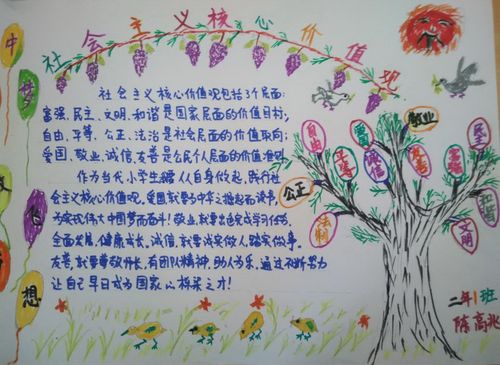 社会主义核心价值观
中
梦
想
社会主义核心价值观包括3个层面:
富强、民主、文明、和谐是国家层面的价值目标,
自由、平等、公正、法治是社会层面的价值取向;
爱国、敬业、诚信、友善是公民个人层面的价值准则
作为当代小学生要从自身做起,践行社
会主义核心价值观,爱国就要为中华之崛起而读书,
为实现伟大中国梦而奋斗!敬业,就要出色完成学习任务,
全面发展,健康成长。诚信,就要诚实做人踏实做事。
友善,就要尊敬师长,有团队精神,助人为乐,通过不断努力
让自己早日成为国家心栋梁之才!
自由
平等
公正
法制
爱国
诚信
敬业
友善
富强
民主
和谐
文明
二年1班
陈高兆